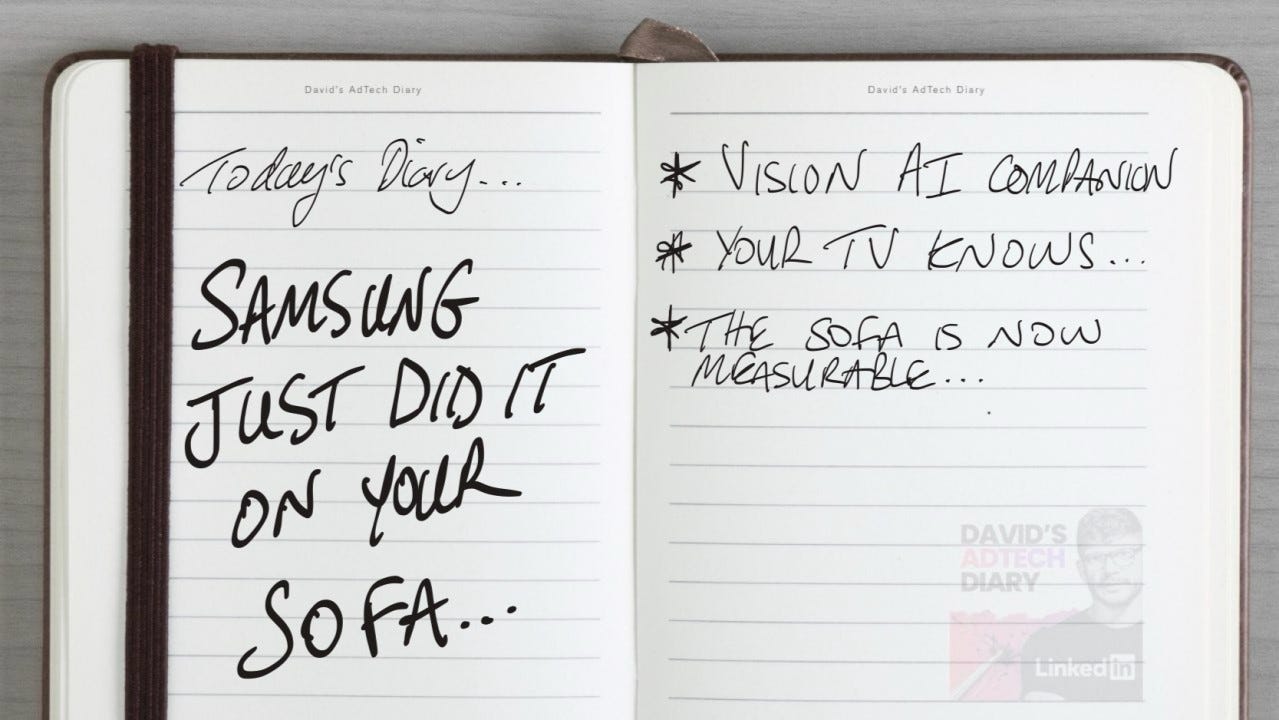 David's AdTech Diary
Today's Diary...
SAMSUNG
JUST DID IT
ON YOUR
SOFA...
David's AdTech Diary
* VISION AI COMPANION
* YOUR TV KNOWS...
* THE SOFA IS NOW
MEASURABLE...
DAVID'S
ADTECH
DIARY
LinkedIn